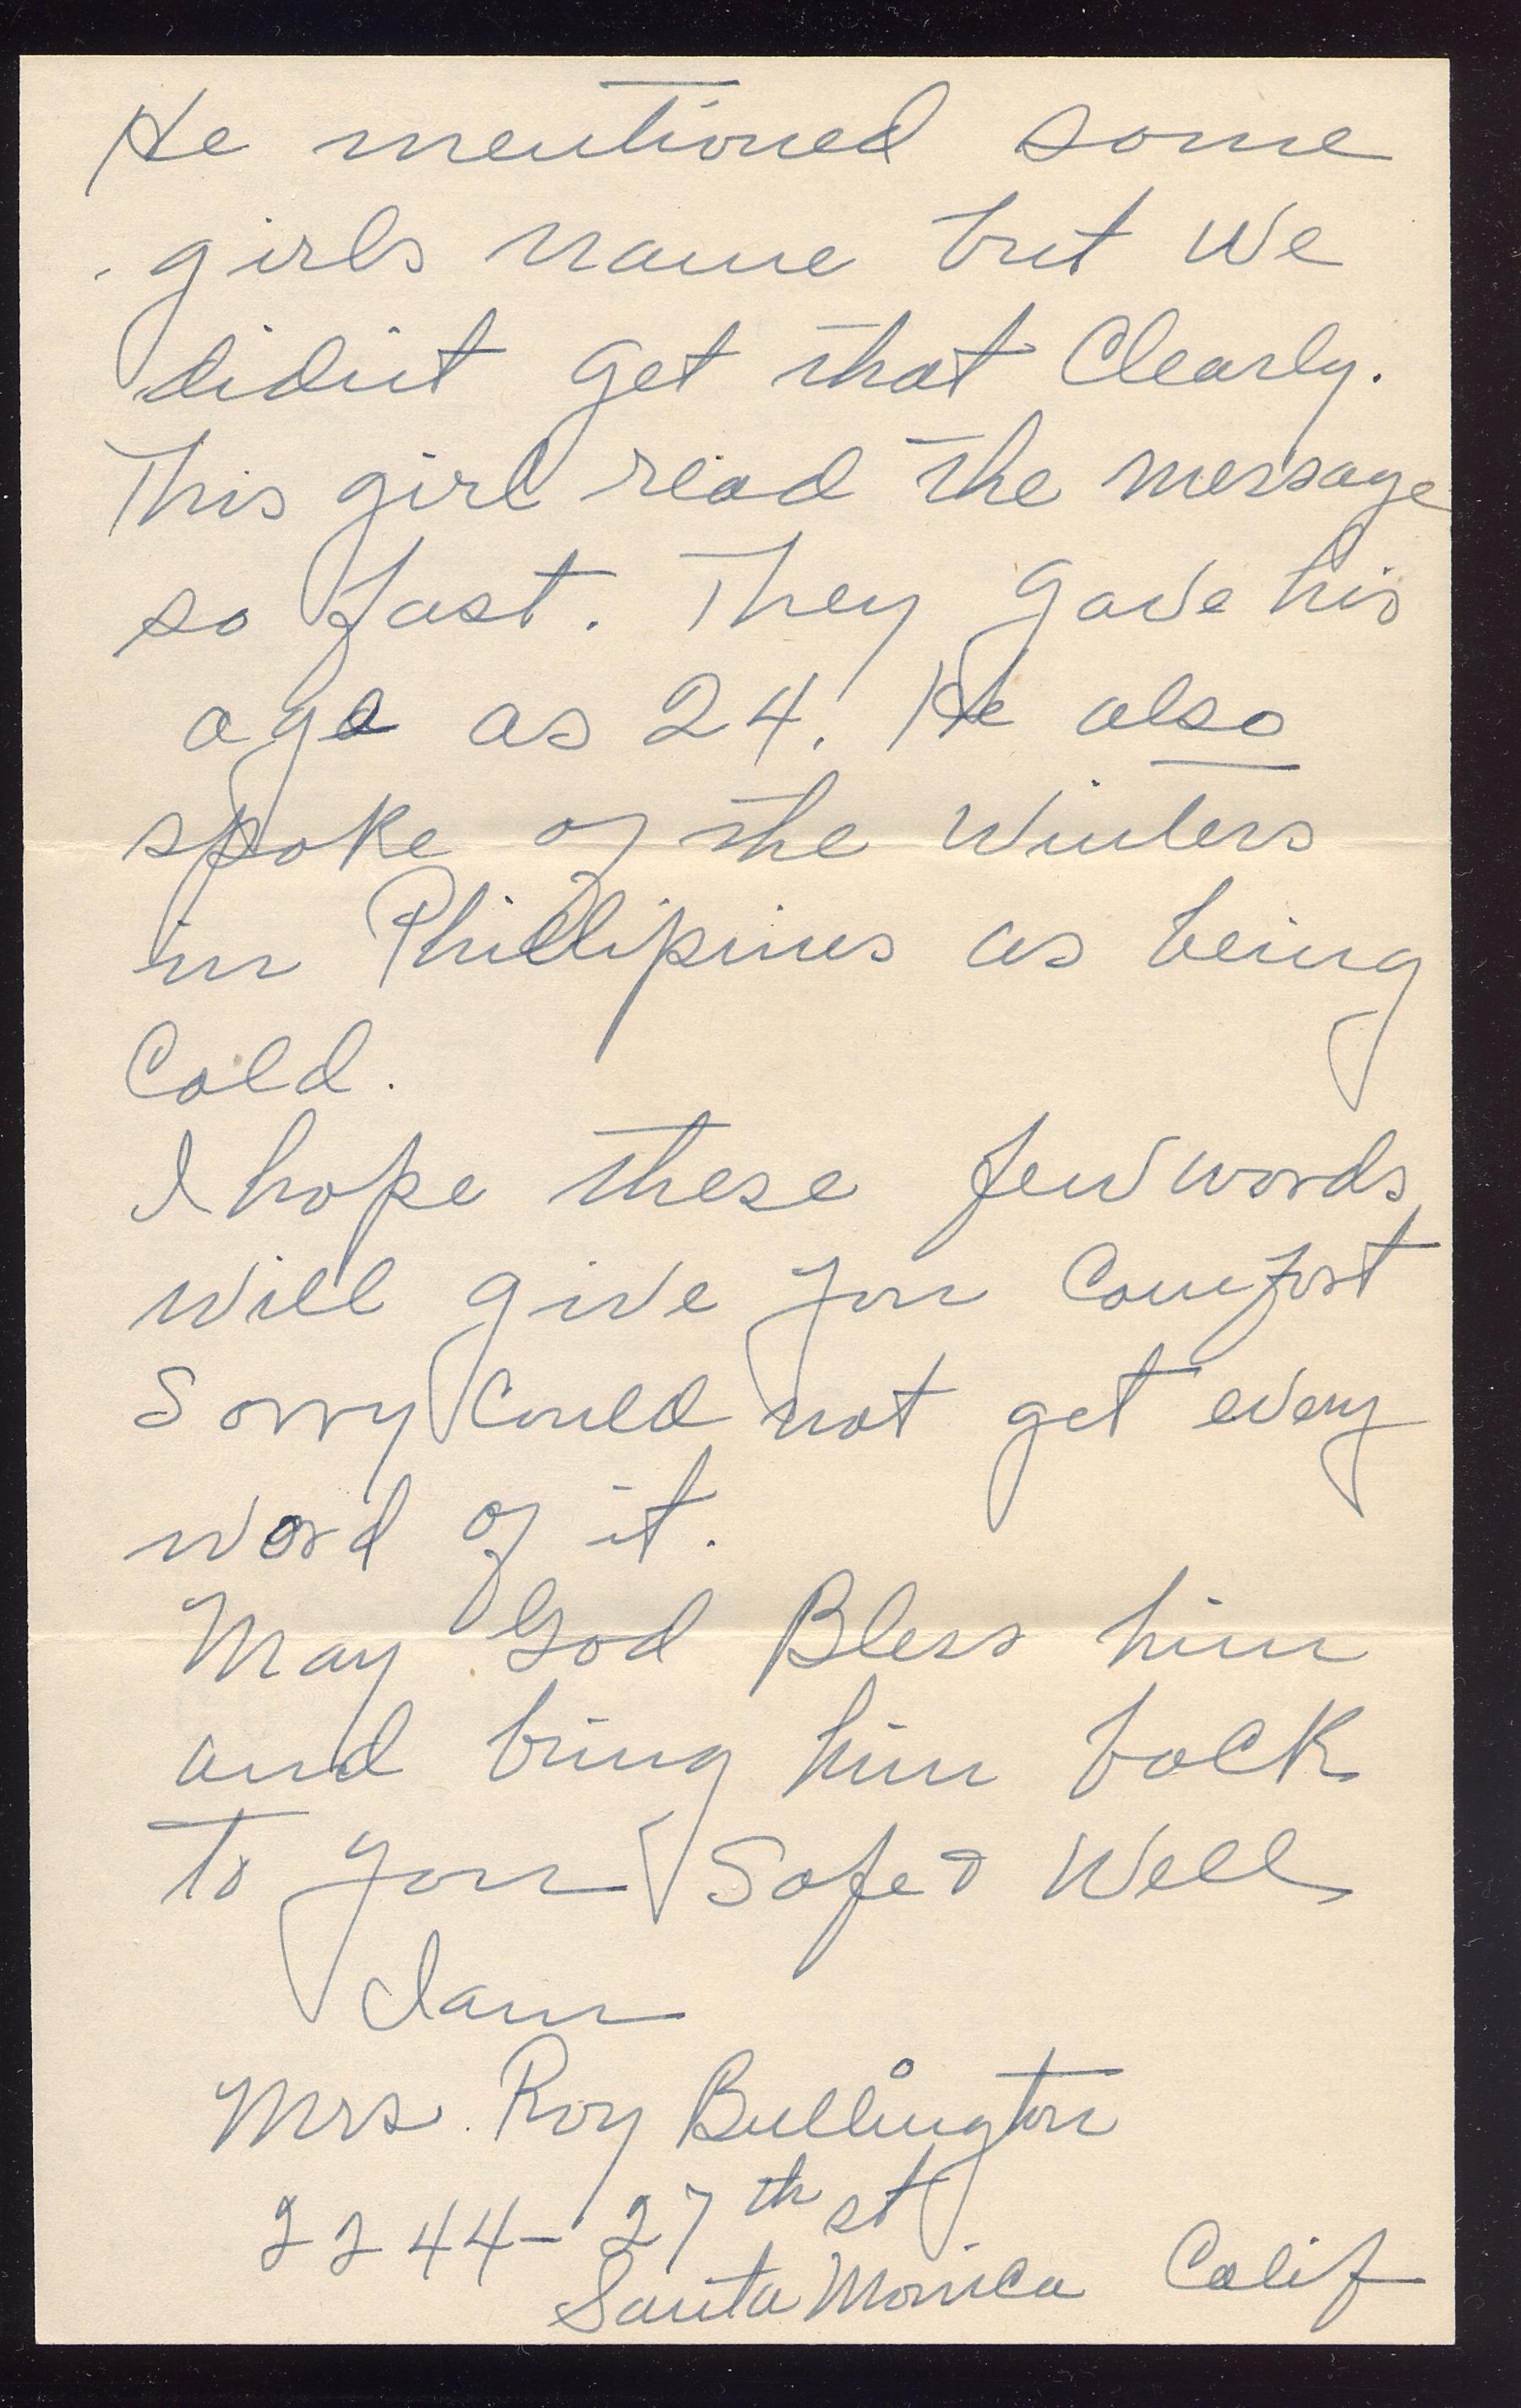 He mentioned some
girls name but we
didn't get that Clearly.
This girl read the message
so fast. They gave his
age as 24. He also
spoke of the winters
in Phillipines as being
Cold.
I hope these few words
will give you Comfort
Sorry Could not get every
word of it.
May God Bless him
and bring him back
to you Safe & Well
I am
Mrs. Roy Bullington
2244-27th st
Santa Monica Calif